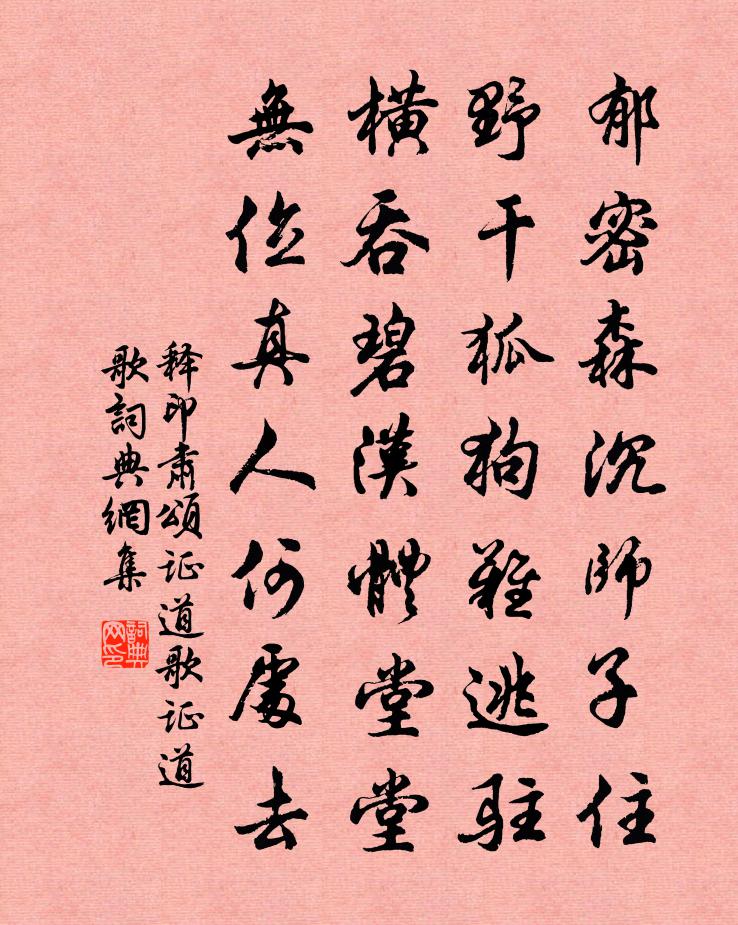 郁密森沉師子住
野干狐狗難逃駐
橫吞碧漢體堂堂
無位真人何處去
释印肃頌证道歌证道
歌詞典網集
詞典
网印